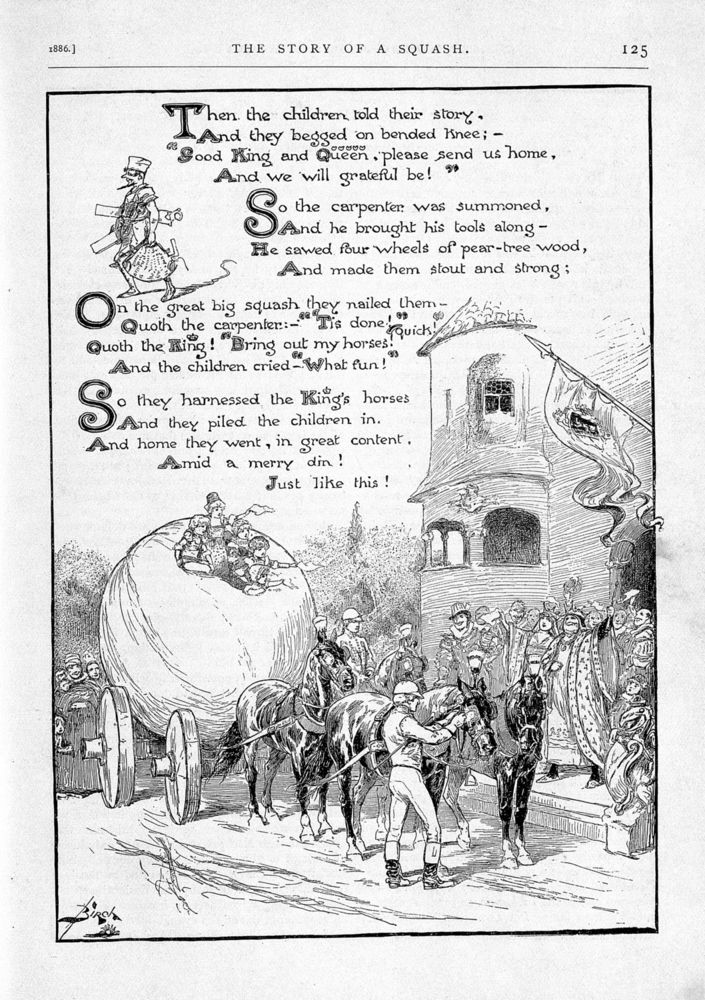 1886.] THE STORY OF A SQUASH. 125
Then the children told their story,
And they begged on bended knee; –
"Good King and Queen, please send us home,
And we will grateful be!"
So the carpenter was summoned,
And he brought his tools along –
He sawed four wheels of pear-tree wood,
And made them stout and strong;
On the great big squash they nailed them –
Quoth the carpenter:– "'Tis done!"
Quoth the King! "Bring out my horses! quick!"
And the children cried – "What fun!"
So they harnessed the King's horses
And they piled the children in.
And home they went, in great content,
Amid a merry din!
Just like this!
Birch